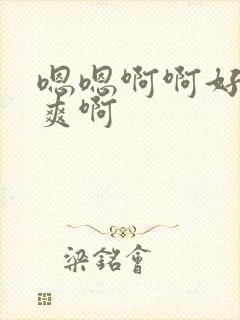 嗯嗯啊啊好
爽啊
梁銘會